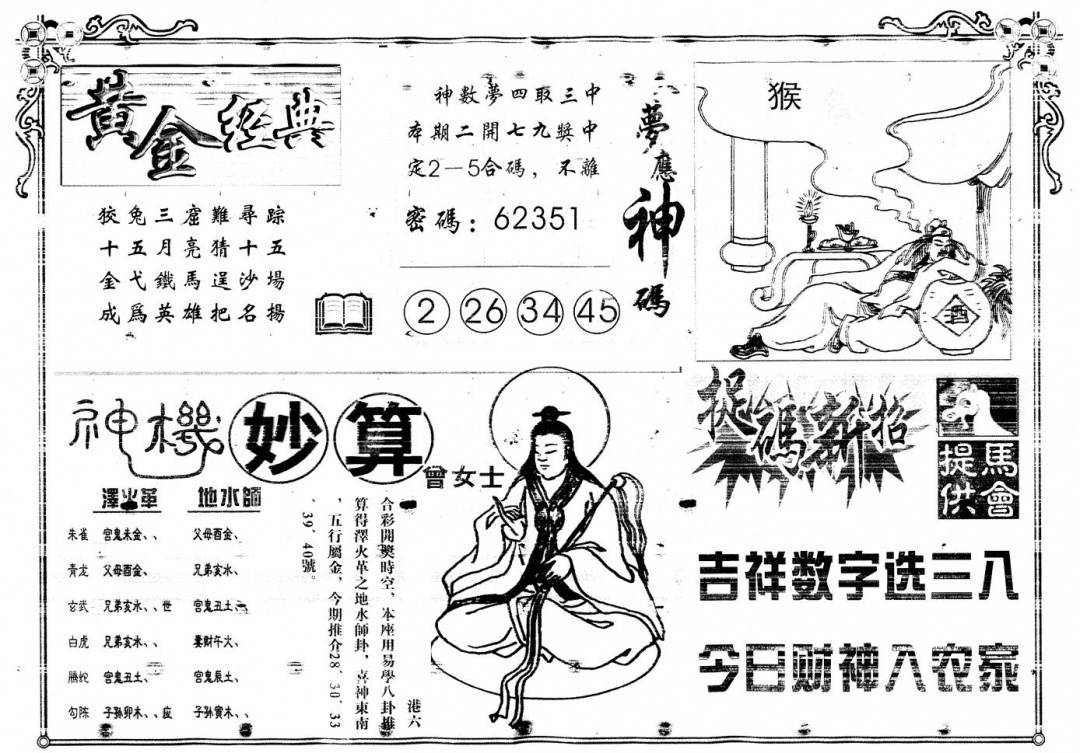 黃金經典
狡兔三窟難尋踪
十五月亮猜十五
金戈鐵馬逞沙場
成爲英雄把名揚
神數夢四取三中
本期二開七九獎中
定2—5合碼，不離
密碼：62351
2 26 34 45
夢應神碼
猴
酒
神機妙算
曾女士
澤火革 地水師
朱雀 官鬼未金、、 父母酉金、
青龙 父母酉金、 兄弟亥水、
玄武 兄弟亥水、、世 官鬼丑土、
白虎 兄弟亥水、、 妻财午火、
騰蛇 官鬼丑土、 官鬼辰土、
勾陈 子孫卯木、、应 子孫寅木、、
港六
合彩開獎時空，本座用易學八卦推
算得澤火革之地水師卦，喜神東南
，五行屬金，今期推介28、30、33
、39、40號。
捉碼新招
馬會提供
吉祥数字选三八
今日财神入农家